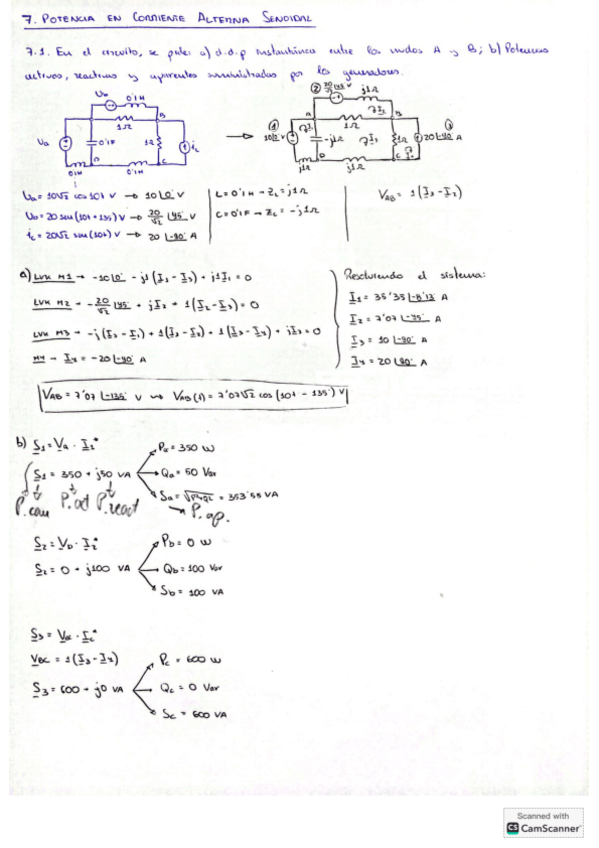 7. POTENCIA EN CORRIENTE ALTERNA SENOIDAL
7.1. En el circuito, se pide: a) d.d.p instantánea entre los nudos A y B; b) Potencias
activas, reactivas y aparentes suministradas por los generadores.
Ub 0'1H
A B
1Ω
Ua 0'1F 1Ω ic
D C
0'1H 0'1H
② 20/√2 ∠45° V j1Ω
A B
1Ω
① 10∠0° V -j1Ω 1Ω 20∠-90° A ③
D C
j1Ω j1Ω
Ua = 10√2 cos 10t V → 10∠0° V
Ub = 20 sen(10t + 135) V → 20/√2 ∠45° V
ic = 20√2 sen(10t) → 20∠-90° A
L = 0'1H → ZL = j1Ω
C = 0'1F → ZC = -j1Ω
VAB = 1(I3 - I2)
a) LVK M1 → -10∠0° - j1(I1 - I3) + j1I1 = 0
LVK M2 → -20/√2 ∠45° + jI2 + 1(I2 - I3) = 0
LVK M3 → -j(I3 - I1) + 1(I3 - I2) + 1(I3 - I4) + jI3 = 0
M4 → I4 = -20∠-90° A
Resolviendo el sistema:
I1 = 35'35∠-8'13° A
I2 = 7'07∠-45° A
I3 = 10∠-90° A
I4 = 20∠90° A
VAB = 7'07∠-135° V → VAB(t) = 7'07√2 cos(10t - 135°) V
b) S1 = Va · I1*
S1 = 350 + j50 VA
Pa = 350 W
Qa = 50 Var
Sa = √P²+Q² = 353'55 VA
P. act P. react
→ P. ap.
S2 = Vb · I2*
S2 = 0 + j100 VA
Pb = 0 W
Qb = 100 Var
Sb = 100 VA
S3 = VBC · Ic*
VBC = 1(I3 - I4)
S3 = 600 + j0 VA
Pc = 600 W
Qc = 0 Var
Sc = 600 VA
Scanned with
CS CamScanner